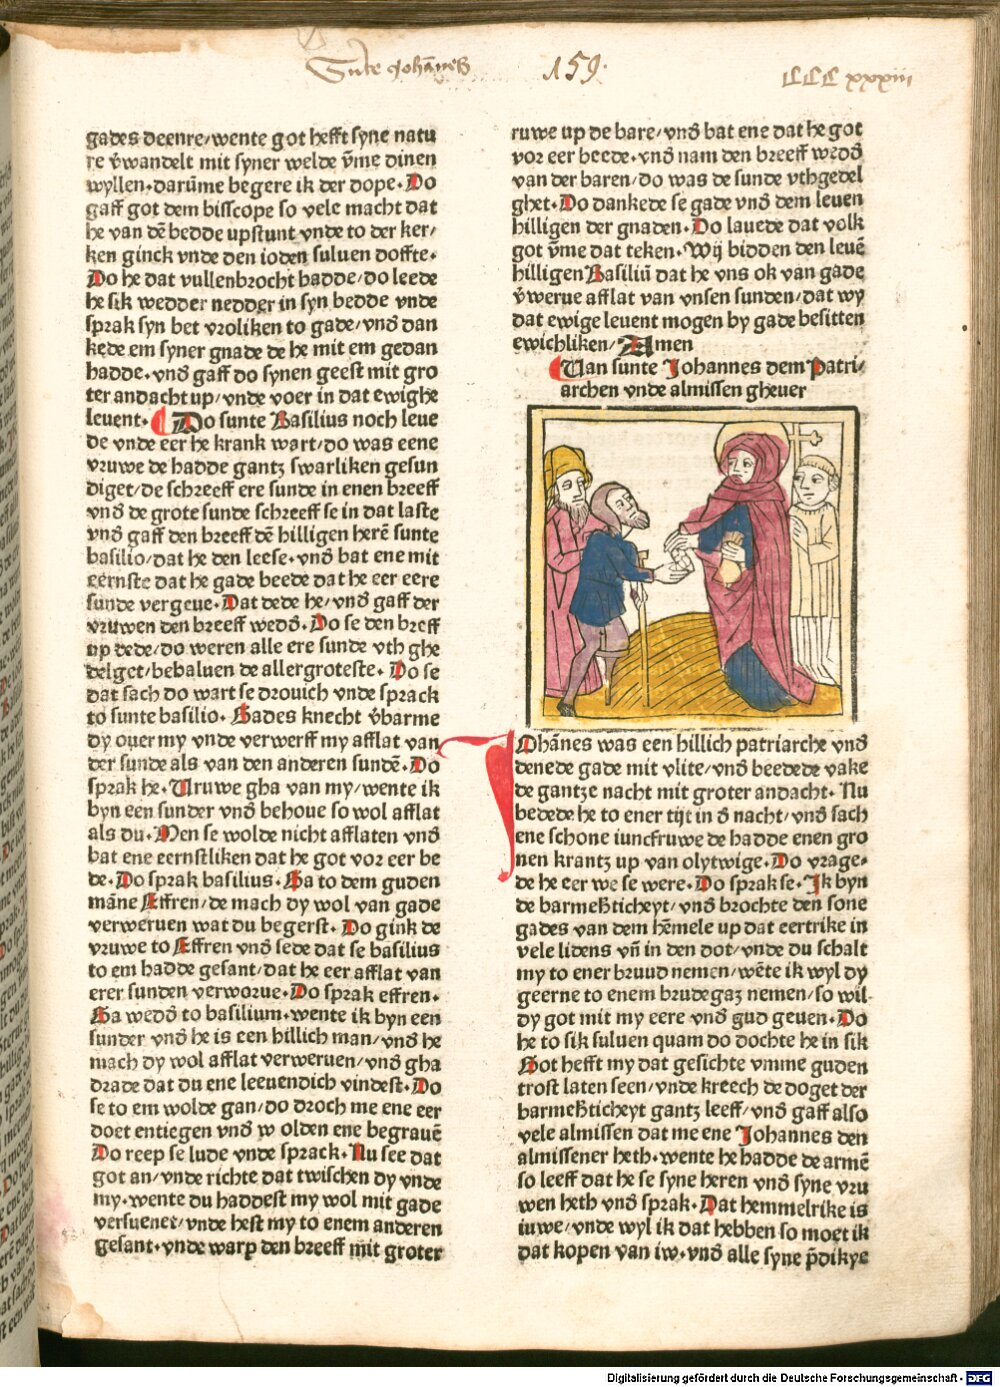 Sute Johānes 159. CCC xxxiii
gades deenre/wente got hefft syne natu
re v̄wandelt mit syner welde v̄me dinen
wyllen.darūme begere ik der dope.Do
gaff got dem bisscope so vele macht dat
he van dē bedde upstunt vnde to der ker/
ken ginck vnde den ioden suluen doffte.
Do he dat vullenbrocht hadde/do leede
he sik wedder nedder in syn bedde vnde
sprak syn bet vroliken to gade/vnđ dan
kede em syner gnade de he mit em gedan
hadde.vnđ gaff do synen geest mit gro
ter andacht up/vnde voer in dat ewighe
leuent. Do sunte Basilius noch leue
de vnde eer he krank wart/do was eene
vruwe de hadde gantz swarliken gesun
diget/de schreeff ere sunde in enen breeff
vnđ de grote sunde schreeff se in dat laste
vnđ gaff den breeff dē hilligen herē sunte
basilio/dat he den leese.vnđ bat ene mit
eernste dat he gade beede dat he eer eere
sunde vergeue.Dat dede he/vnđ gaff der
vruwen den breeff wedđ.Do se den breff
up dede/do weren alle ere sunde vth ghe
delget/behaluen de allergroteste.Do se
dat sach do wart se drouich vnde sprack
to sunte basilio.Gades knecht v̄barme
dy ouer my vnde verwerff my afflat van
der sunde als van den anderen sundē.Do
sprak he.Uruwe gha van my/wente ik
byn een sunder vnđ behoue so wol afflat
als du.Men se wolde nicht afflaten vnđ
bat ene eernstliken dat he got vor eer be
de.Do sprak basilius.Ga to dem guden
māne Effren/de mach dy wol van gade
verweruen wat du begerst.Do gink de
vruwe to Effren vnđ sede dat se basilius
to em hadde gesant/dat he eer afflat van
erer sunden verworue.Do sprak effren.
Ga wedđ to basilium.wente ik byn een
sunder vnđ he is een hillich man/vnđ he
mach dy wol afflat verweruen/vnđ gha
drade dat du ene leeuendich vindest.Do
se to em wolde gan/do droch me ene eer
doet entiegen vnđ w olden ene begrauē
Do reep se lude vnde sprack.Nu see dat
got an/vnde richte dat twischen dy vnde
my.wente du haddest my wol mit gade
versuenet/vnde hest my to enem anderen
gesant.vnde warp den breeff mit groter
ruwe up de bare/vnđ bat ene dat he got
vor eer beede.vnđ nam den breeff wedđ
van der baren/do was de sunde vthgedel
ghet.Do dankede se gade vnđ dem leuen
hilligen der gnaden.Do lauede dat volk
got v̄me dat teken.Wij bidden den leuē
hilligen Basiliū dat he vns ok van gade
v̄werue afflat van vnsen sunden/dat wy
dat ewige leuent mogen by gade besitten
ewichliken/Amen
Uan sunte Johannes dem Patri/
archen vnde almissen gheuer
JOhānes was een hillich patriarche vnđ
denede gade mit vlite/vnđ beedede vake
de gantze nacht mit groter andacht.Nu
bedede he to ener tijt in đ nacht/vnđ sach
ene schone iuncfruwe de hadde enen gro
nen krantz up van olytwige.Do vrage/
de he eer we se were.Do sprak se.Ik byn
de barmeßticheyt/vnđ brochte den sone
gades van dem hēmele up dat eertrike in
vele lidens vn̄ in den dot/vnde du schalt
my to ener bruud nemen/wēte ik wyl dy
geerne to enem brudegaz nemen/so wil
dy got mit my eere vnđ gud geuen.Do
he to sik suluen quam do dochte he in sik
Got hefft my dat gesichte vmme guden
trost laten seen/vnde kreech de doget der
barmeßticheyt gantz leeff/vnđ gaff also
vele almissen dat me ene Johannes den
almissener heth.wente he hadde de armē
so leeff dat he se syne heren vnđ syne vru
wen heth vnđ sprak.Dat hemmelrike is
iuwe/vnde wyl ik dat hebben so moet ik
dat kopen van iw.vnđ alle syne p̄dikye
Digitalisierung gefördert durch die Deutsche Forschungsgemeinschaft - DFG